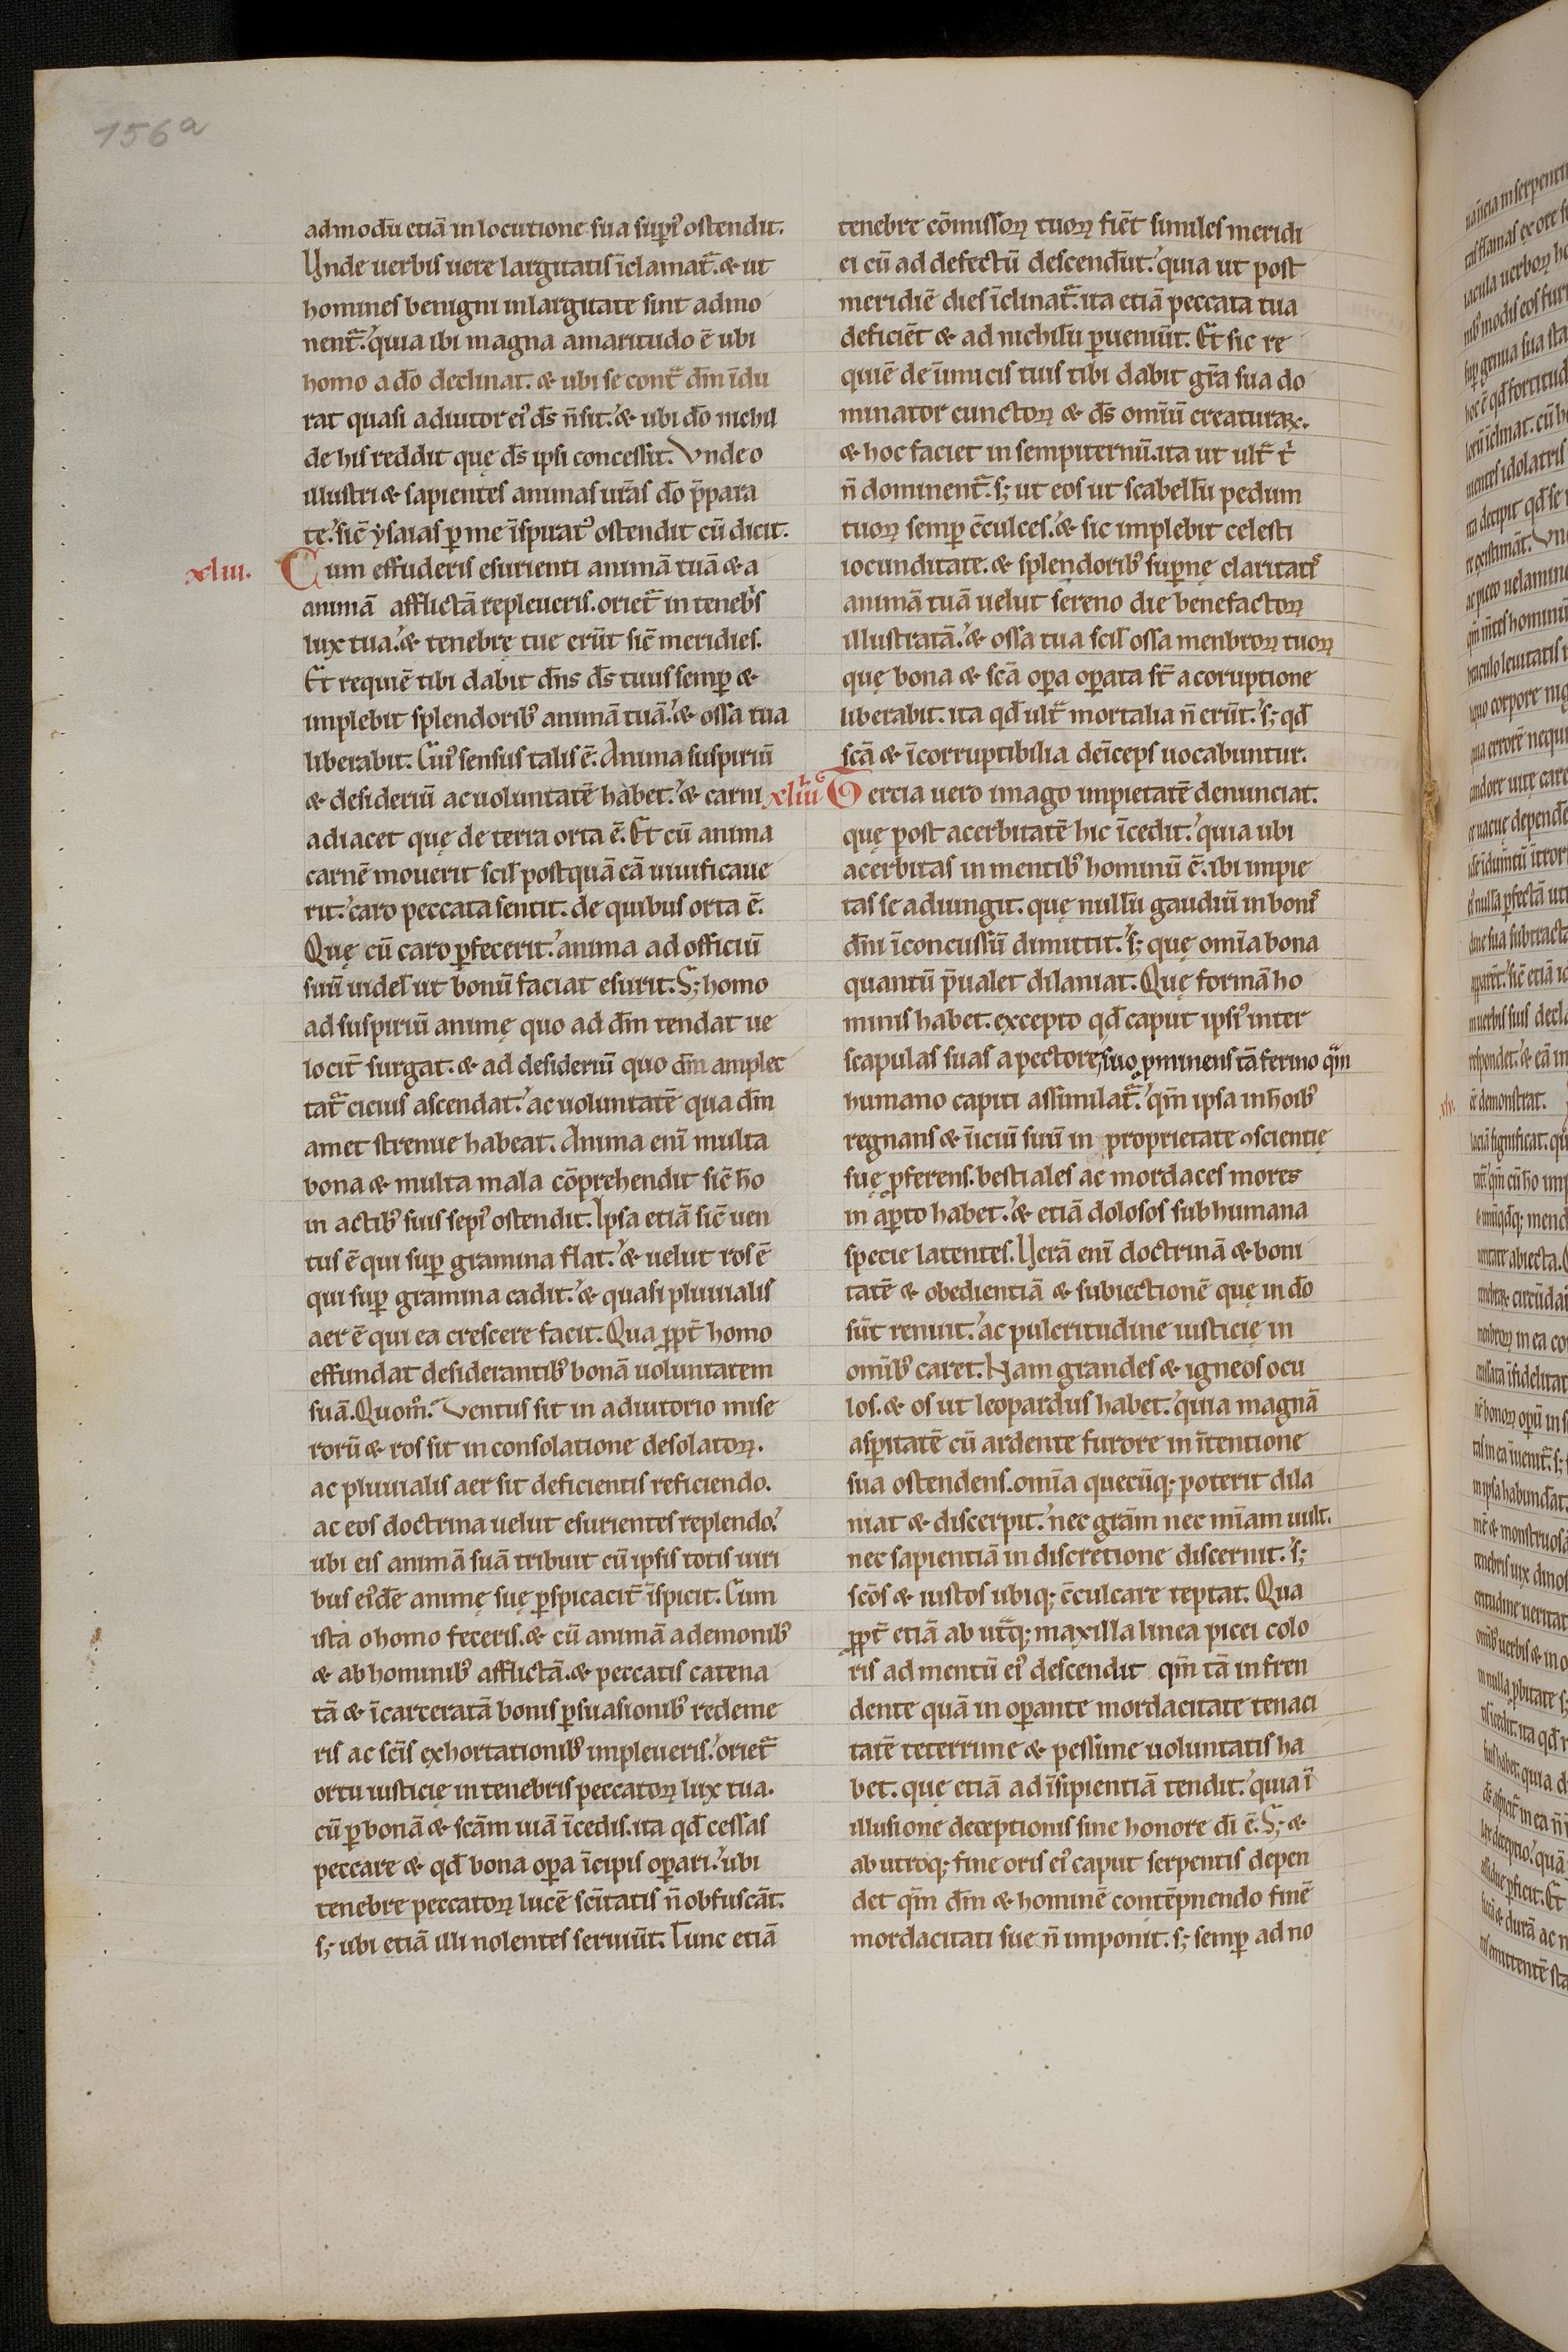 156a
admodū etiā in locutione sua supi᾽ ostendit.
Vnde uerbis uere largitatis īclamat᷑. & ut
homines benigni in largitate sint admo
nent᷑.᾽ quia ibi magna amaritudo ē ubi
homo a dō declinat. & ubi se cont᷑ dm̄ īdu
rat quasi adiutor ei᾽ ds̄ n̄ sit.᾽ & ubi dō nichil
de his reddit quę ds̄ ipsi concessit. Vnde o
illustri & sapientes animas ur̄as dō p̄para
te.᾽ sic̄ ysaias p̱ me īspirat᾽ ostendit cū dicit.
xliii. Cum effuderis esurienti animā tuā & a
animā afflictā repleueris. oriet᷑ in tenebr᾽s
lux tua.᾽ & tenebrę tue erūt sic̄ meridies.
Et requiē tibi dabit dn̄s ds̄ tuus semp̱ &
implebit splendorib᾽ animā tuā.᾽ & ossa tua
liberabit. Cui᾽ sensus talis ē. Anima suspiriū
& desideriū ac uoluntatē habet.᾽ & carni
adiacet quę de terra orta ē. Et cū anima
carnē mouerit scil̄ postquā eā uiuificaue
rit.᾽ caro peccata sentit. de quibus orta ē.
Quę cū caro p̱fecerit.᾽ anima ad officiū
suū uidel̄ ut bonū faciat esurit. S; homo
ad suspiriū animę quo ad dm̄ tendat ue
locit᷑ surgat. & ad desideriū quo dm̄ amplec
tat᷑ cicius ascendat.᾽ ac uoluntatē qua dm̄
amet strenue habeat. Anima enī multa
bona & multa mala cōprehendit sic̄ hō
in actib᾽ suis sepi᾽ ostendit. Ipsa etiā sic̄ uen
tus ē qui sup̱ gramina flat.᾽ & uelut ros ē
qui sup̱ gramina cadit.᾽ & quasi pluuialis
aer ē qui ea crescere facit. Qua p̱pt᷑ homo
effundat desiderantib᾽ bonā uoluntatem
suā. Quom̊.᾽ Ventus sit in adiutorio mise
rorū & ros sit in consolatione desolatoꝝ.
ac pluuialis aer sit deficientis reficiendo.
ac eos doctrina uelut esurientes replendo.᾽
ubi eis animā suā tribuit cū ipsis totis uiri
bus ei᾽dē animę suę p̱spicacit᷑ īspicit. Cum
ista o homo feceris. & cū animā a demonib᾽
& ab hominib᾽ afflictā. & peccatis catena
tā & īcarceratā bonis p̱suasionib᾽ redeme
ris ac scīs exhortationib᾽ impleueris.᾽ oriet᷑
ortu iusticię in tenebris peccatoꝝ lux tua.
cū p̱ bonā & scām uiā īcedis. ita qd̄ cessas
peccare & qd̄ bona op̱a īcipis op̱ari.᾽ ubi
tenebre peccatoꝝ lucē scītatis n̄ obfuscāt.
s; ubi etiā illi nolentes seruiūt. Tunc etiā
tenebre cōmissoꝝ tuoꝝ fiēt similes meridi
ei cū ad defectū descendūt.᾽ quia ut post
meridiē dies īclinat᷑. ita etiā peccata tua
deficiēt & ad nichilū p̱ueniūt. Et sic re
quiē de īimicis tuis tibi dabit grā sua do
minator cunctoꝝ & ds̄ omīū creaturaꝝ.
& hoc faciet in sempiternū. ita ut ult᷑ t᾽
n̄ dominent᷑. s; ut eos ut scabellū pedum
tuoꝝ semp̱ c̄culces.᾽ & sic implebit celesti
iocunditate. & splendorib᾽ sup̱nę claritat᾽
animā tuā uelut sereno die benefactoꝝ
illustratā.᾽ & ossa tua scil̄ ossa menbroꝝ tuoꝝ
quę bona & scā op̱a op̱ata st̄ a coruptione
liberabit. ita qd̄ ult᷑ mortalia n̄ erūt.᾽ s; qd̄
scā & īcorruptibilia deīceps uocabuntur.
xliiii Tercia uero imago impietatē denunciat.
quę post acerbitatē hic īcedit.᾽ quia ubi
acerbitas in mentib᾽ hominū ē. ibi impie
tas se adiungit. quę nullū gaudiū in bonis
dm̄i īconcussū dimittit.᾽ s; quę omīa bona
quantū p̄ualet dilaniat. Quę formā ho
minis habet. excepto qd̄ caput ipsi᾽ inter
scapulas suas a pectore suo p̱minens tā ferino qm̄
humano capiti assimilat᷑.᾽ qm̄ ipsa in hōib᾽
regnans & īiciū suū in proprietate ꝯscientię
suę p̱ferens. bestiales ac mordaces mores
in ap̱to habet.᾽ & etiā dolosos sub humana
specie latentes. Verā enī doctrinā & boni
tatē & obedientiā & subiectionē quę in dō
sūt renuit.᾽ ac pulcritudine iusticię in
omīb᾽ caret. Nam grandes & igneos ocu
los. & os ut leopardus habet.᾽ quia magnā
asp̱itatē cū ardente furore in ītentione
sua ostendens. omīa quecūq; poterit dila
niat & discerpit.᾽ nec grām nec mīam uult.
nec sapientiā in discretione discernit.᾽ s;
scōs & iustos ubiq; c̄culcare teptat. Qua
p̱pt᷑ etiā ab ut᷑q; maxilla linea picei colo
ris ad mentū ei᾽ descendit qm̄ tā in fren
dente quā in op̱ante mordacitate tenaci
tatē teterrime & pessime uoluntatis ha
bet. quę etiā ad īsipientiā tendit.᾽ quia ī
illusione deceptionis sine honore dī ē. S; &
ab utroq; fine oris ei᾽ caput serpentis depen
det qm̄ dm̄ & hominē contēpnendo finē
mordacitati sue n̄ imponit. s; semp̱ ad no